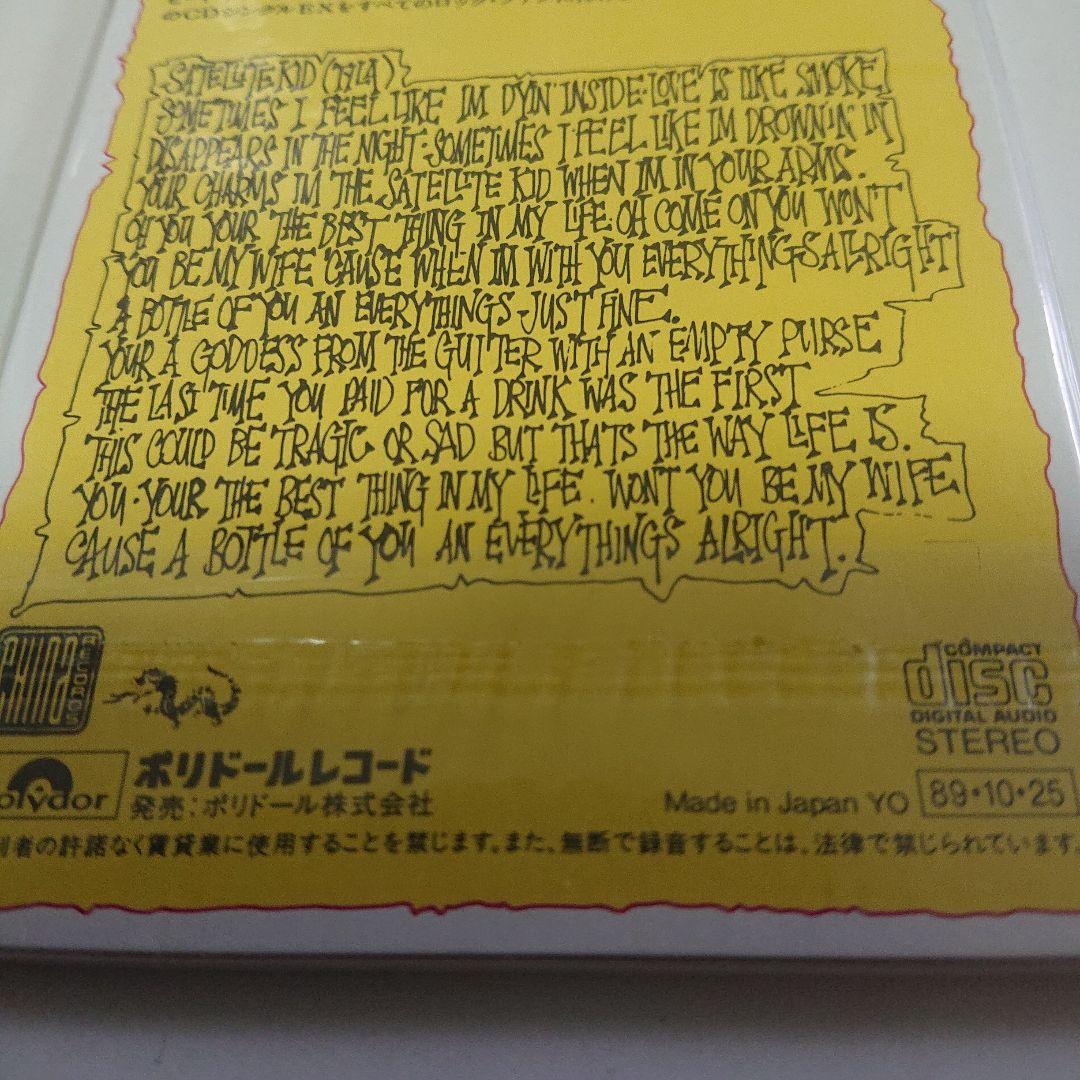 のCDシングルEXをすべてのロック・ファンに
SATELLITE KID (TYLA)
SOMETIMES I FEEL LIKE IM DYIN' INSIDE·LOVE IS LIKE SMOKE
DISAPPEARS IN THE NIGHT·SOMETIMES I FEEL LIKE IM DROWNIN' IN
YOUR CHARMS IM THE SATELLITE KID WHEN IM IN YOUR ARMS.
OH YOU YOUR THE BEST THING IN MY LIFE·OH COME ON YOU WON'T
YOU BE MY WIFE 'CAUSE WHEN IM WITH YOU EVERYTHINGS ALRIGHT
A BOTTLE OF YOU AN EVERYTHINGS JUST FINE.
YOUR A GODDESS FROM THE GUTTER WITH AN EMPTY PURSE
THE LAST TIME YOU PAID FOR A DRINK WAS THE FIRST
THIS COULD BE TRAGIC OR SAD BUT THATS THE WAY LIFE IS.
YOU·YOUR THE BEST THING IN MY LIFE. WON'T YOU BE MY WIFE
CAUSE A BOTTLE OF YOU AN EVERYTHINGS ALRIGHT.
CHINA RECORDS
COMPACT disc DIGITAL AUDIO
STEREO
polydor
ポリドールレコード
発売:ポリドール株式会社
Made in Japan YO 89·10·25
利者の許諾なく賃貸業に使用することを禁じます。また、無断で録音することは、法律で禁じられています。